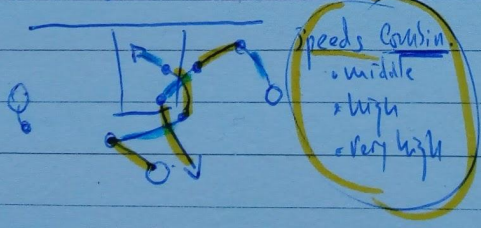 speeds Combin.
• middle
• high
• very high